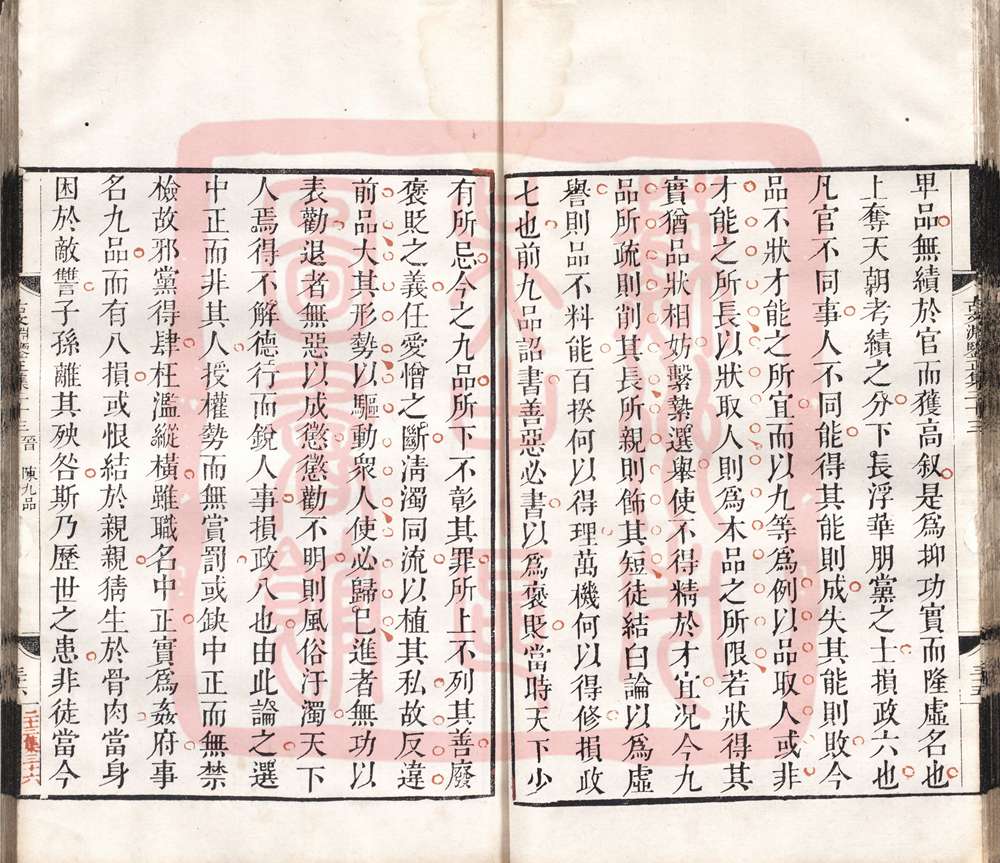 卑品無績於官而獲高叙是爲抑功實而隆虛名也
上奪天朝考績之分下長浮華朋黨之士損政六也
凡官不同事人不同能得其能則成失其能則敗今
品不狀才能之所宜而以九等爲例以品取人或非
才能之所長以狀取人則爲本品之所限若狀得其
實猶品狀相妨繫縶選舉使不得精於才宜况今九
品所疏則削其長所親則飾其短徒結白論以爲虛
譽則品不料能百揆何以得理萬機何以得修損政
七也前九品詔書善惡必書以爲褒貶當時天下少
有所忌今之九品所下不彰其罪所上不列其善廢
褒貶之義任愛憎之斷淸濁同流以植其私故反違
前品大其形勢以驅動衆人使必歸已進者無功以
表勸退者無惡以成懲懲勸不明則風俗汙濁天下
人焉得不解德行而銳人事損政八也由此論之選
中正而非其人授權勢而無賞罰或缺中正而無禁
檢故邪黨得肆枉濫縱橫雖職名中正實爲姦府事
名九品而有八損或恨結於親親猜生於骨肉當身
困於敵讐子孫離其殃咎斯乃歷世之患非徒當今
古文淵鑒正集二十三
三五
古文淵鑒正集二十三 晉 陳九品
三六
二十三集三十六